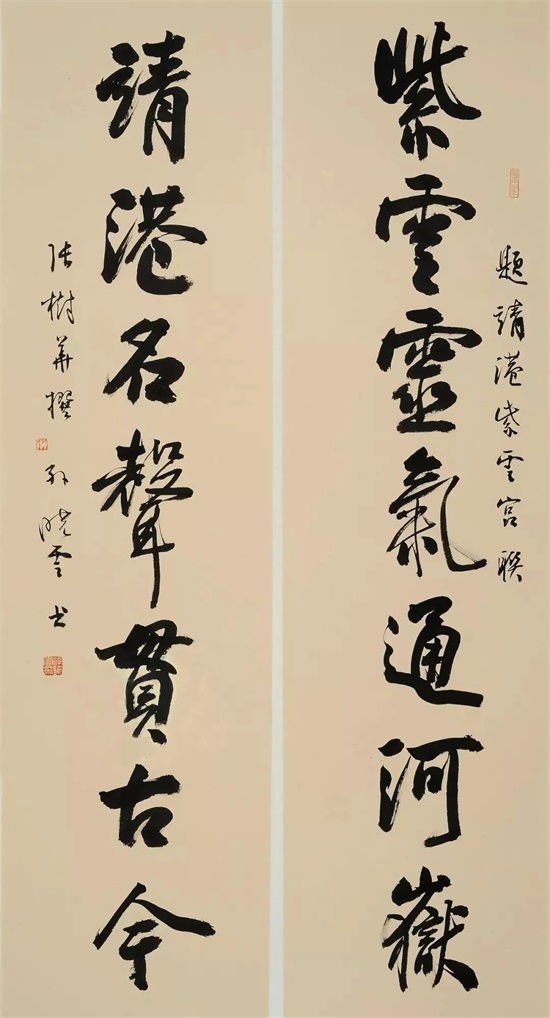 題靖港紫雲宮聯
紫雲靈氣通河嶽
靖港名聲貫古今
張樹華撰 孫曉雲書